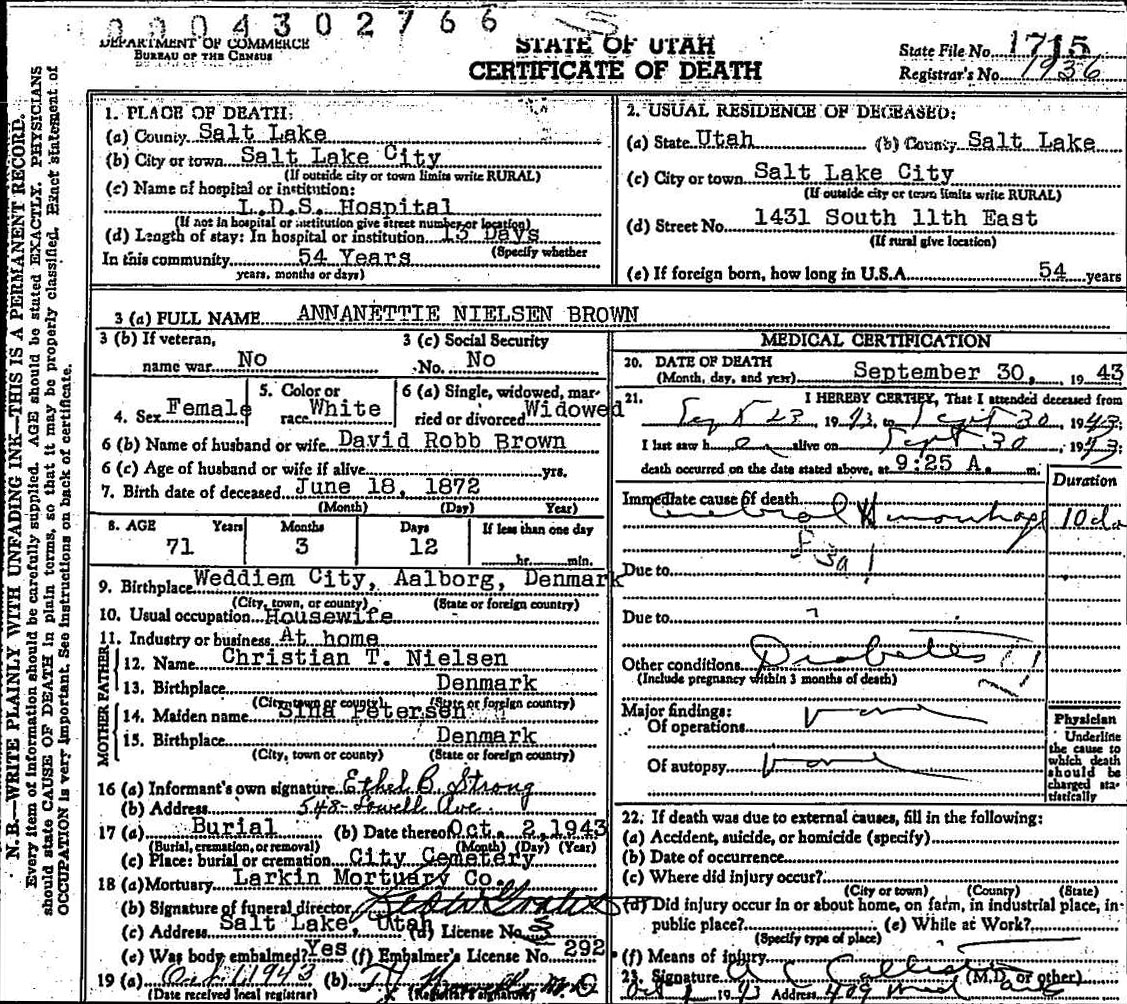 0004302766
DEPARTMENT OF COMMERCE
BUREAU OF THE CENSUS
STATE OF UTAH
CERTIFICATE OF DEATH
State File No. 1715
Registrar's No. 1936
N. B.—WRITE PLAINLY WITH UNFADING INK—THIS IS A PERMANENT RECORD.
Every item of information should be carefully supplied. AGE should be stated EXACTLY. PHYSICIANS
should state CAUSE OF DEATH in plain terms, so that it may be properly classified. Exact statement of
OCCUPATION is very important. See instructions on back of certificate.
1. PLACE OF DEATH:
(a) County Salt Lake
(b) City or town Salt Lake City
(If outside city or town limits write RURAL)
(c) Name of hospital or institution:
L.D.S. Hospital
(If not in hospital or institution give street number or location)
(d) Length of stay: In hospital or institution 13 Days
(Specify whether
In this community 54 Years
years, months or days)
2. USUAL RESIDENCE OF DECEASED:
(a) State Utah (b) County Salt Lake
(c) City or town Salt Lake City
(If outside city or town limits write RURAL)
(d) Street No. 1431 South 11th East
(If rural give location)
(e) If foreign born, how long in U.S.A. 54 years
3 (a) FULL NAME ANNANETTIE NIELSEN BROWN
3 (b) If veteran,
name war No
3 (c) Social Security
No. No
4. Sex Female
5. Color or
race White
6 (a) Single, widowed, mar-
ried or divorced Widowed
6 (b) Name of husband or wife David Robb Brown
6 (c) Age of husband or wife if alive yrs.
7. Birth date of deceased June 18, 1872
(Month) (Day) Year)
8. AGE Years Months Days If less than one day
71 3 12 hr. min.
9. Birthplace Weddiem City, Aalborg, Denmark
(City, town, or county) (State or foreign country)
10. Usual occupation Housewife
11. Industry or business At home
FATHER
12. Name Christian T. Nielsen
13. Birthplace Denmark
(City, town or county) (State or foreign country)
MOTHER
14. Maiden name Sina Petersen
15. Birthplace Denmark
(City, town or county) (State or foreign country)
16 (a) Informant's own signature Ethel B. Strong
(b) Address 548 Lowell Ave.
17 (a) Burial (b) Date thereof Oct. 2, 1943
(Burial, cremation, or removal) (Month) (Day) (Year)
(c) Place: burial or cremation City Cemetery
18 (a) Mortuary Larkin Mortuary Co.
(b) Signature of funeral director
(c) Address Salt Lake, Utah (d) License No.
(e) Was body embalmed? Yes (f) Embalmer's License No. 292
19 (a) Oct 1 1943 (b) M.D.
(Date received local registrar) (Registrar's signature)
MEDICAL CERTIFICATION
20. DATE OF DEATH
(Month, day, and year) September 30, 1943
21. I HEREBY CERTIFY, That I attended deceased from
Sept 23, 1943, to Sept 30 1943;
I last saw her alive on Sept 30, 1943;
death occurred on the date stated above, at 9:25 A. m.
Duration
Immediate cause of death
Cerebral Hemorrhage 10 da
Due to
Due to
Other conditions Diabetes
(Include pregnancy within 3 months of death)
Major findings:
Of operations
Of autopsy
Physician
Underline
the cause to
which death
should be
charged sta-
tistically
22. If death was due to external causes, fill in the following:
(a) Accident, suicide, or homicide (specify)
(b) Date of occurrence
(c) Where did injury occur?
(City or town) (County) (State)
(d) Did injury occur in or about home, on farm, in industrial place, in
public place? (e) While at Work?
(Specify type of place)
(f) Means of injury
23. Signature (M.D. or other)
Oct 1 1943 Address 409